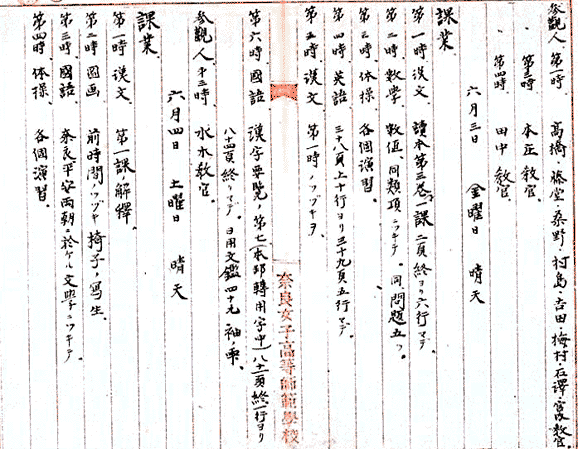 参観人 第一時 高橋・藤堂・桑野・村島・吉田・梅村・石澤・宮原教官
〃 第三時 本庄教官
〃 第四時 田中教官
六月三日 金曜日 晴天
課業
第一時 漢文 讀本第三巻、一課二頁終ヨリ六行マデ
第二時 數學 數値、同類項ニツキテ。同、問題五ツ。
第三時 体操 各個演習。
第四時 英語 三十八頁上十行ヨリ三十九頁五行マデ
第五時 漢文 第一時ノツヅキヲ
第六時 國語 漢字要覧、第七(本邦轉用字中)八十一頁終一行ヨリ
八十四頁終リマデ。日用文鑑四十九 袖ノ雫。
参觀人 第三時 水木教官
六月四日 土曜日 晴天
課業
第一時 漢文 第一課ノ解釋。
第二時 圖画 前時間ノツヅキ椅子ノ寫生
第三時 國語 奈良平安両朝ニ於ケル文學ニツキテ
第四時 体操 各個演習。
奈良女子高等師範學校